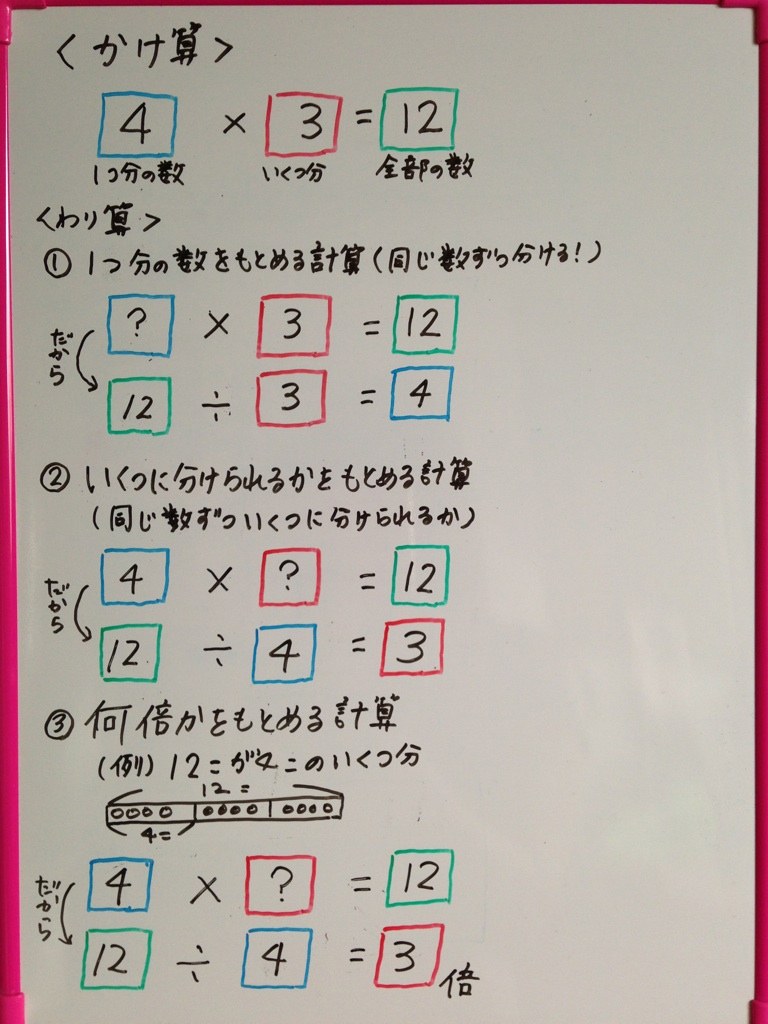 〈かけ算〉
4 × 3 = 12
1つ分の数 いくつ分 全部の数
〈わり算〉
① 1つ分の数をもとめる計算(同じ数ずつ分ける!)
? × 3 = 12
だから
12 ÷ 3 = 4
② いくつに分けられるかをもとめる計算
(同じ数ずついくつに分けられるか)
4 × ? = 12
だから
12 ÷ 4 = 3
③ 何倍かをもとめる計算
(例) 12こが4このいくつ分
12こ
4こ
4 × ? = 12
だから
12 ÷ 4 = 3倍